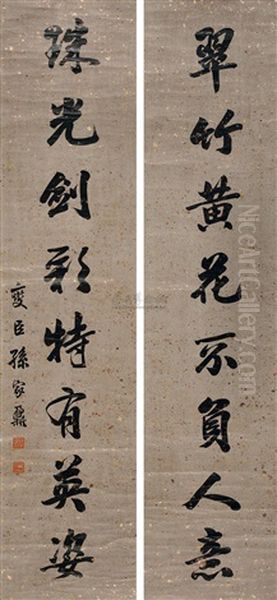 翠竹黄花不負人意
珠光劍彩特有英姿
燮臣孫家鼐
NiceArtGallery.com